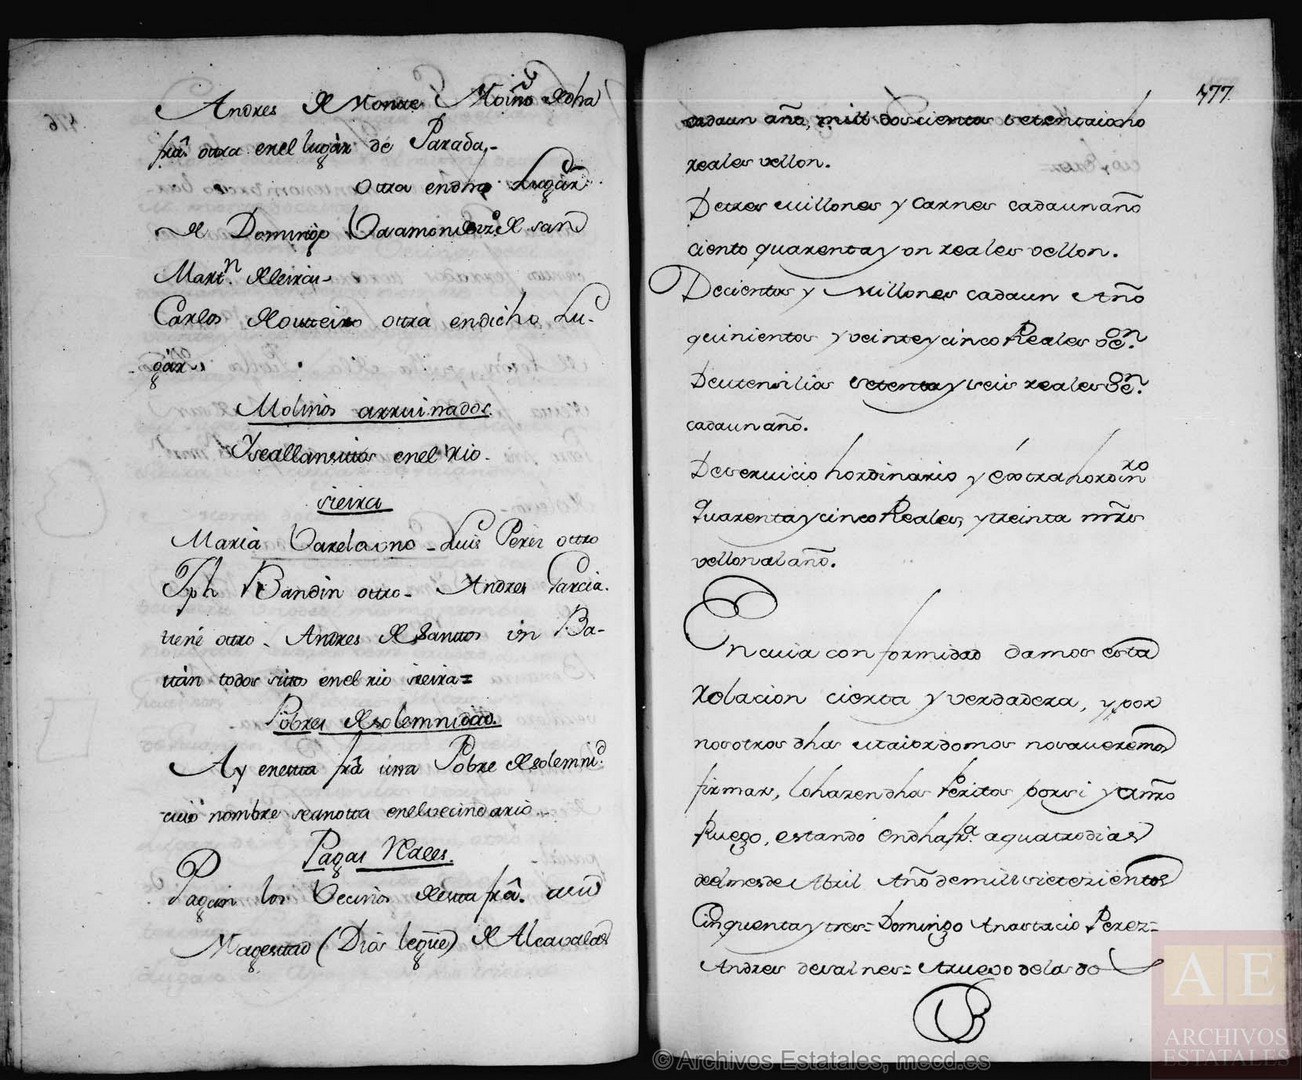 Andres de Monte Moiño de dha
frâ. otra enel lugar de Parada,-
Otra en dho Lugar
de Domingo Varamondez de san
Martn. de leirai-
Carlos de outeiro otra en dicho Lu-
gar
Molinos arruinados
Yseallansitos enel rio-
sieira
Maria Varela uno - Luis Perez otro
Jph Bandin otro - Andres Garcia
tiene otro - Andres de Santtos in Ba-
tán todos sitos enel rio sieira=
Pobres de solemnidad.
Ay enesta frâ una Pobre de solemnid.
cuio nombre se anotta enel vecindario..
Pagas Reales.
Pagan los Vecinos de esta frâ. a su
Magestad (Dios legûe) de Alcavalas
477
cadaun año, mill doscientos setentaiocho
reales vellon.
Detres millones y Carnes cadaun año
ciento quarenta y un reales vellon.
Decientos y Millones cadaun Año
quinientos y veinteycinco Reales von.
Deutensilios setenta y seis reales von.
cadaun año.
Deservicio hordinario y éxtrahordinro
Quarenta y cinco Reales, y treinta mrs
vellon al año.
En cuia conformidad damos esta
Relacion cierta y verdadera, y por
nosotros dhos maiordomos nosaveremos
firmar, lo hazen dhos Peritos porsi y a nro
Ruego, estando en dha frâ. a quatro dias
del mes de Abril Año de mill setezientos
Cinquenta y tres= Domingo Anastacio Perez=
Andres deValnes= Aruego de los do
© Archivos Estatales, mecd.es
AE
ARCHIVOS
ESTATALES